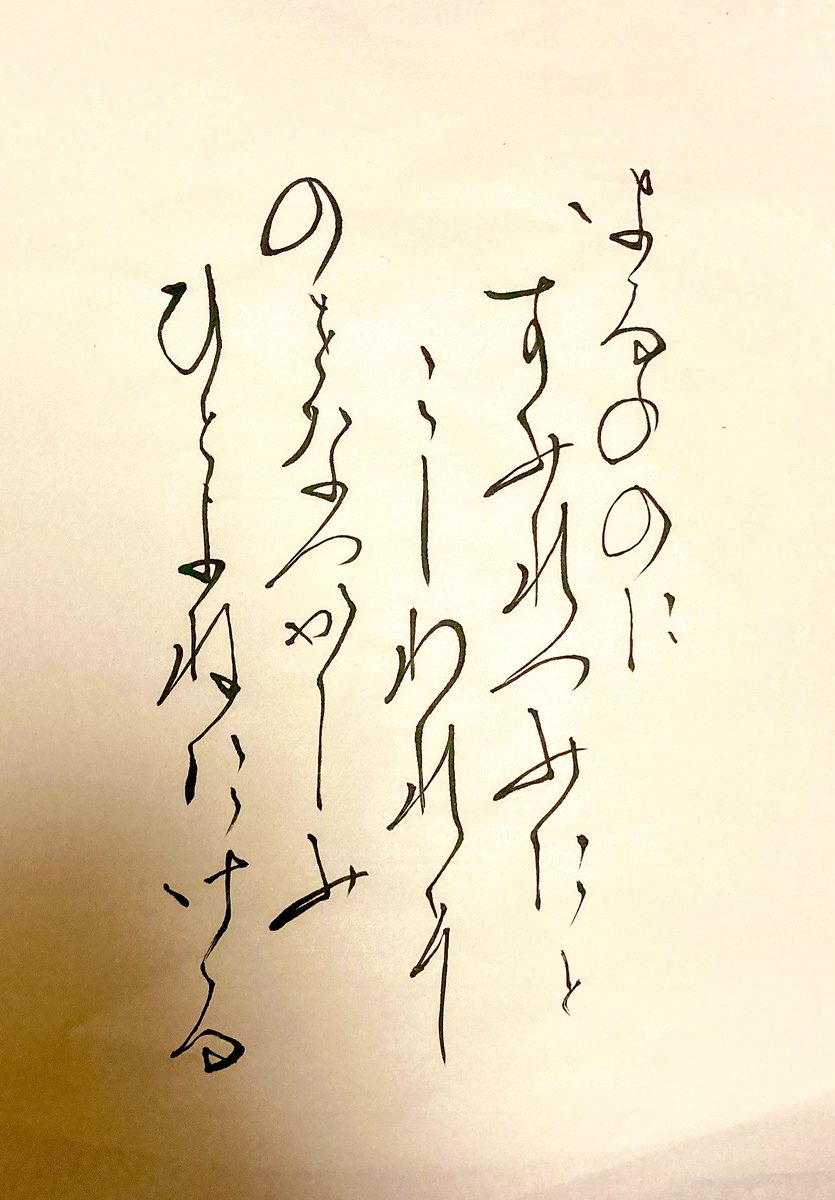 はるののに
すみれつみにと
こしわれそ
のをなつかしみ
ひとよねにける